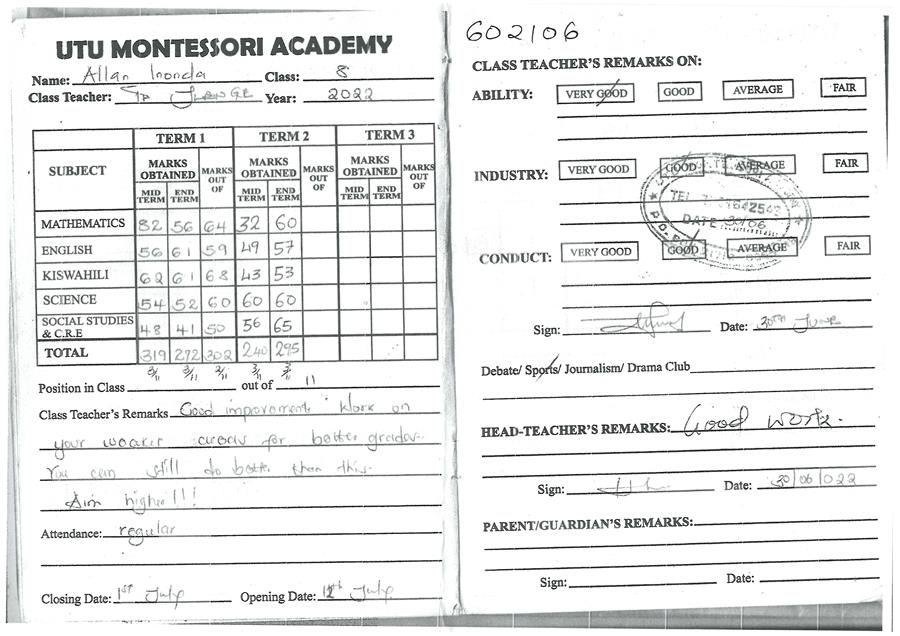 UTU MONTESSORI ACADEMY
Name: Allan Class: 8
Class Teacher: Year: 2022
SUBJECT TERM 1 TERM 2 TERM 3
MARKS OBTAINED MARKS OUT OF MARKS OBTAINED MARKS OUT OF MARKS OBTAINED MARKS OUT OF
MID TERM END TERM MID TERM END TERM MID TERM END TERM
MATHEMATICS 82 56 64 32 60
ENGLISH 56 61 59 49 57
KISWAHILI 62 61 68 43 53
SCIENCE 54 52 60 60 60
SOCIAL STUDIES & C.R.E 48 41 50 56 65
TOTAL 319 272 302 240 295
3/11 3/11 2/11 3/11
Position in Class out of 11
Class Teacher's Remarks Good improvement. Work on
your weaker areas for better grades.
You can still do better than this.
Aim higher!!!
Attendance: regular
Closing Date: 1st July Opening Date: 12th July
602106
CLASS TEACHER'S REMARKS ON:
ABILITY: VERY GOOD GOOD AVERAGE FAIR
INDUSTRY: VERY GOOD GOOD AVERAGE FAIR
TEL
DATE 30/06
CONDUCT: VERY GOOD GOOD AVERAGE FAIR
Sign: Date: 30th June
Debate/ Sports/ Journalism/ Drama Club
HEAD-TEACHER'S REMARKS: Good work.
Sign: Date: 30/06/022
PARENT/GUARDIAN'S REMARKS:
Sign: Date: